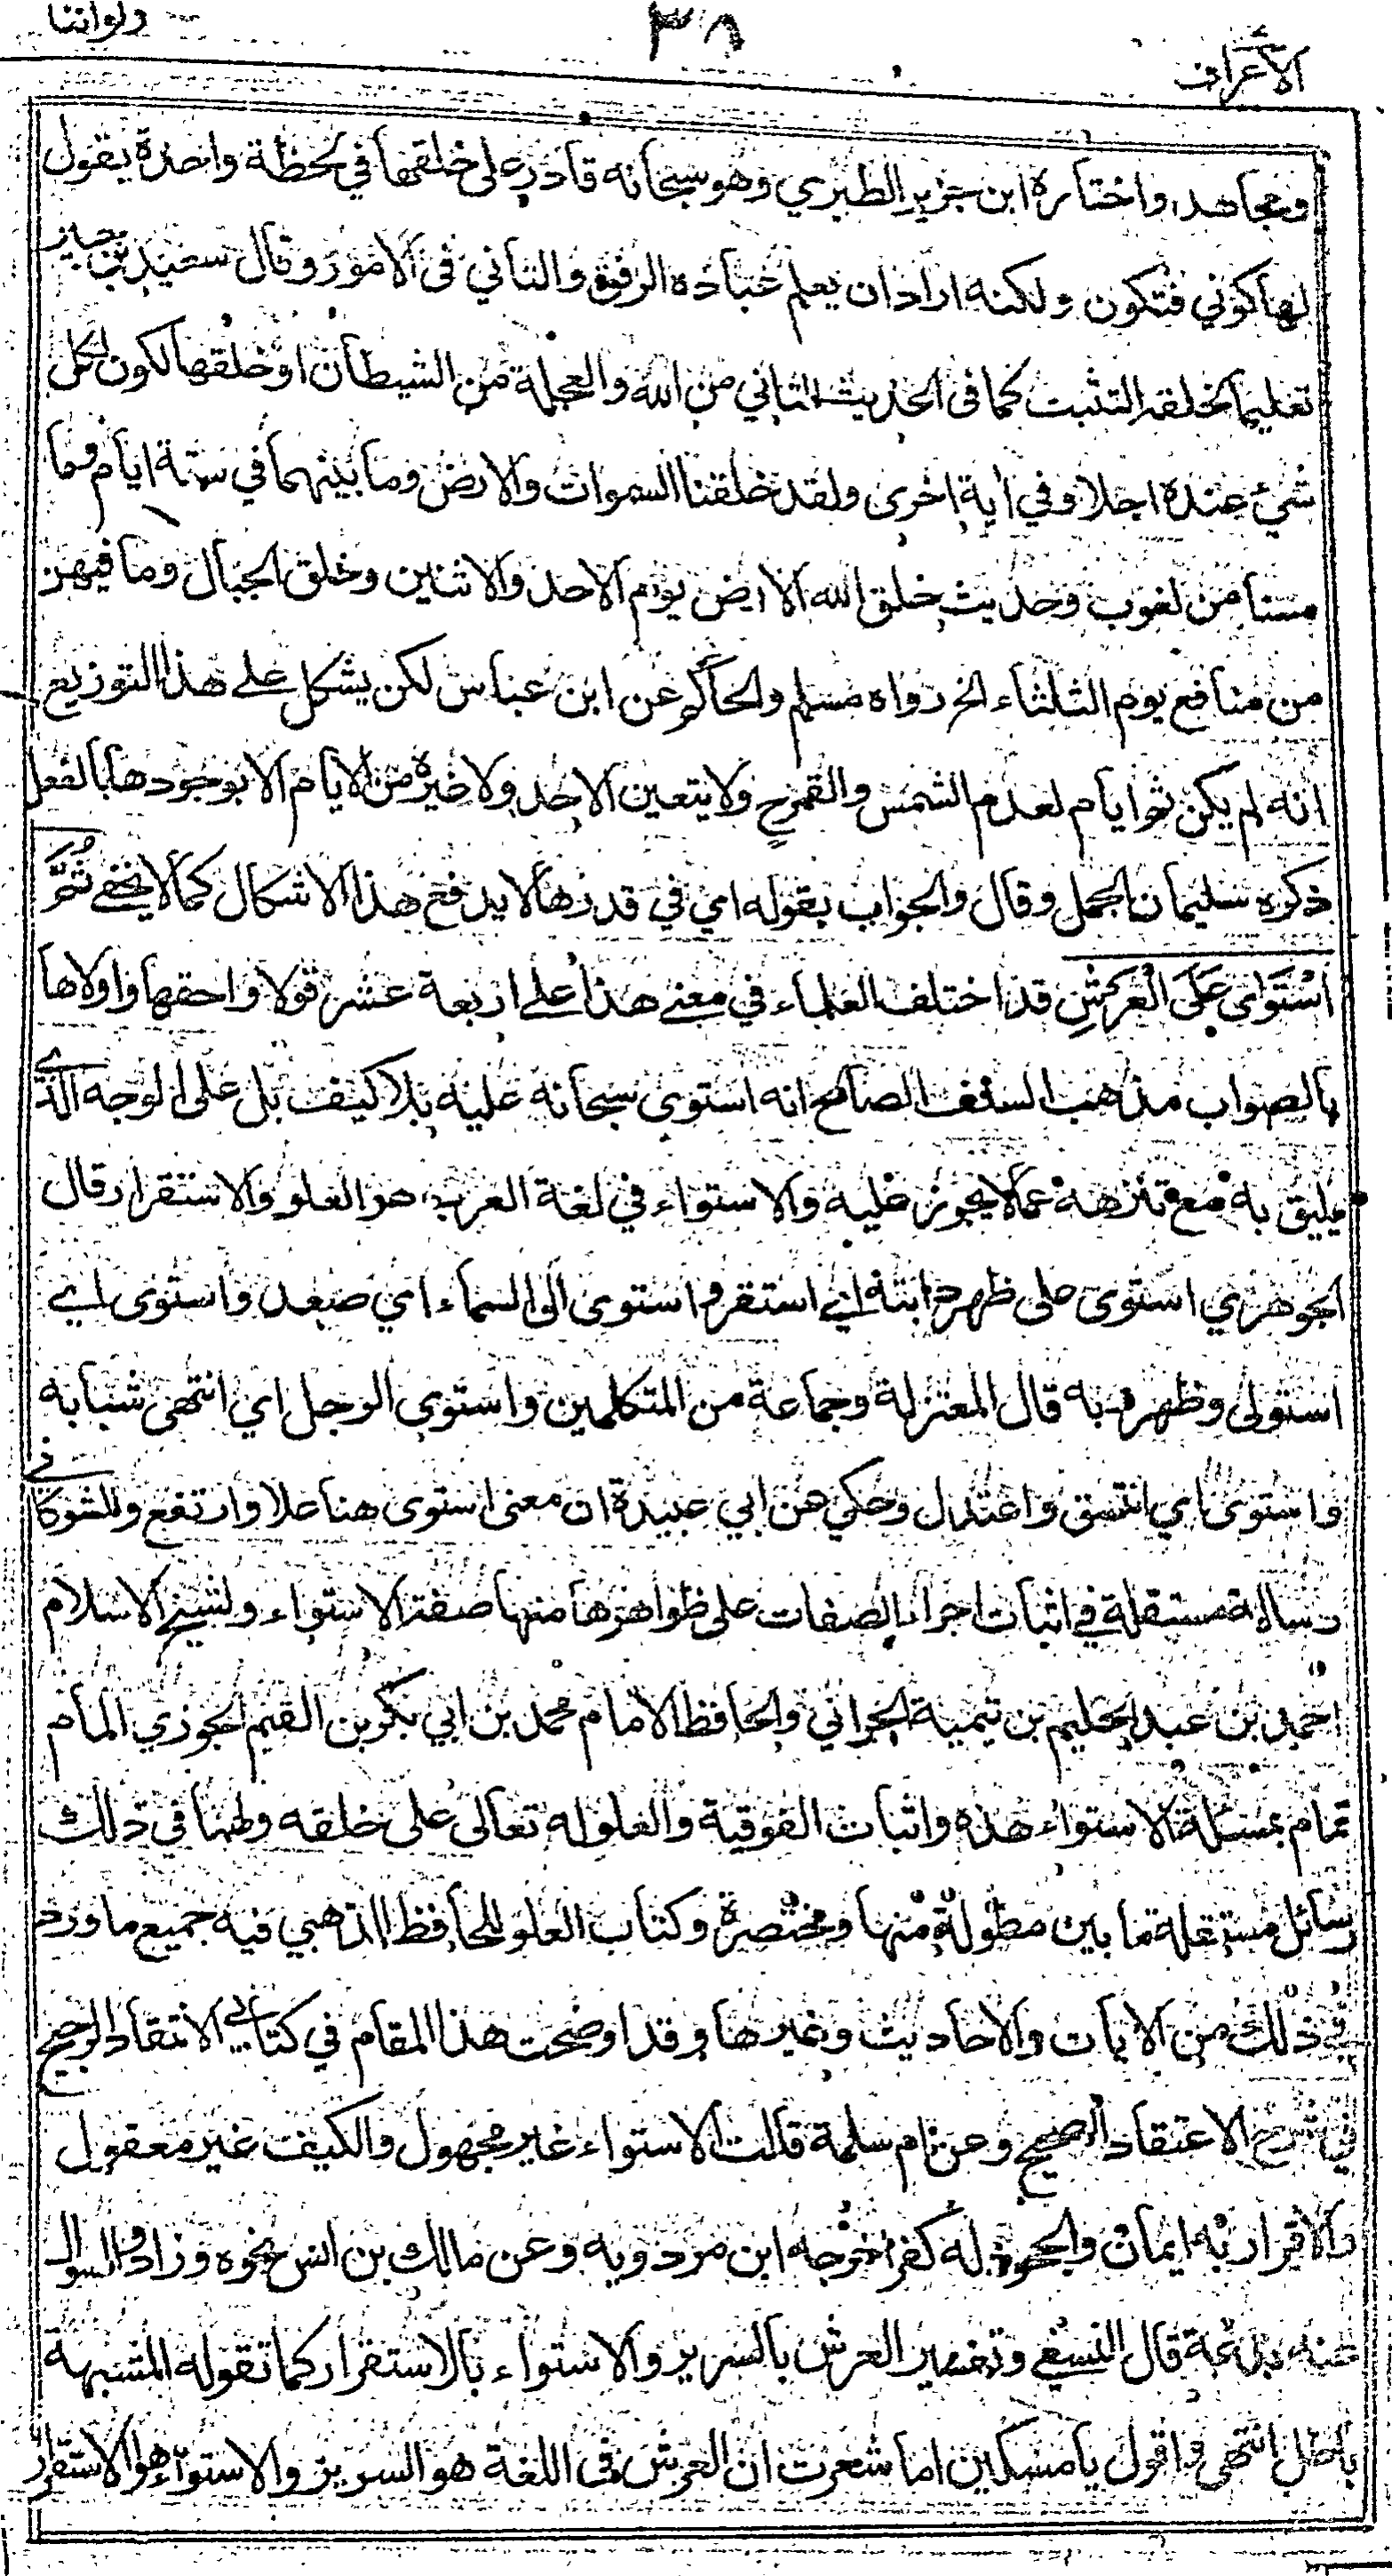 ولواننا
٣٨
الأعراف
ومجاهد واختاره ابن جرير الطبري وهو سبحانه قادر على خلقها في لحظة واحدة يقول
لها كوني فتكون ولكنه اراد ان يعلم عباده الرفق والتاني في الامور وقال سعيد بن جبير
تعليما لخلقه التثبت كما في الحديث التاني من الله والعجلة من الشيطان او خلقها لكون لكل
شيء عنده اجلا وفي اية اخرى ولقد خلقنا السموات والارض وما بينهما في ستة ايام وما
مسنا من لغوب وحديث خلق الله الارض يوم الاحد والاثنين وخلق الجبال وما فيهن
من منافع يوم الثلثاء الخ رواه مسلم والحاكم عن ابن عباس لكن يشكل على هذا التوزيع
انه لم يكن ثم ايام لعدم الشمس والقمر ح ولا يتعين الاحد ولا غيره من الايام الا بوجودها بالفعل
ذكره سليمان الجمل وقال والجواب بقوله اي في قدرها لا يدفع هذا الاشكال كما لا يخفى ثُمَّ
اسْتَوٰى عَلَى الْعَرْشِ قد اختلف العلماء في معنى هذا على اربعة عشر قولا واحقها واولاها
بالصواب مذهب السلف الصالح انه استوى سبحانه عليه بلا كيف بل على الوجه الذي
يليق به مع تنزهه عما لا يجوز عليه والاستواء في لغة العرب هو العلو والاستقرار قال
الجوهري استوى على ظهر دابته اي استقر واستوى الى السماء اي صعد واستوى اي
استولى وظهر وبه قال المعتزلة وجماعة من المتكلمين واستوى الرجل اي انتهى شبابه
واستوى اي اتسق واعتدل وحكي عن ابي عبيدة ان معنى استوى هنا علا وارتفع وللشوكاني
رسالة مستقلة في اثبات اجراء الصفات على ظواهرها منها صفة الاستواء ولشيخ الاسلام
احمد بن عبد الحليم بن تيمية الحراني والحافظ الامام محمد بن ابي بكر بن القيم الجوزي المام
تمام بمسئلة الاستواء هذه واثبات الفوقية والعلو له تعالى على خلقه ولهما في ذلك
رسائل مستقلة ما بين مطولة منها ومختصرة وكتاب العلو للحافظ الذهبي فيه جميع ما ورد
في ذلك من الايات والاحاديث وغيرها وقد اوضحت هذا المقام في كتابي الانتقاد الرجيح
في شرح الاعتقاد الصحيح وعن ام سلمة قالت الاستواء غير مجهول والكيف غير معقول
والاقرار به ايمان والجحود له كفر اخرجه ابن مردويه وعن مالك بن انس نحوه وزاد والسوال
عنه بدعة قال النسفي وتفسير العرش بالسرير والاستواء بالاستقرار كما تقوله المشبهة
باطل انتهى واقول يا مسكين اما شعرت ان العرش في اللغة هو السرير والاستواء هو الاستقرار